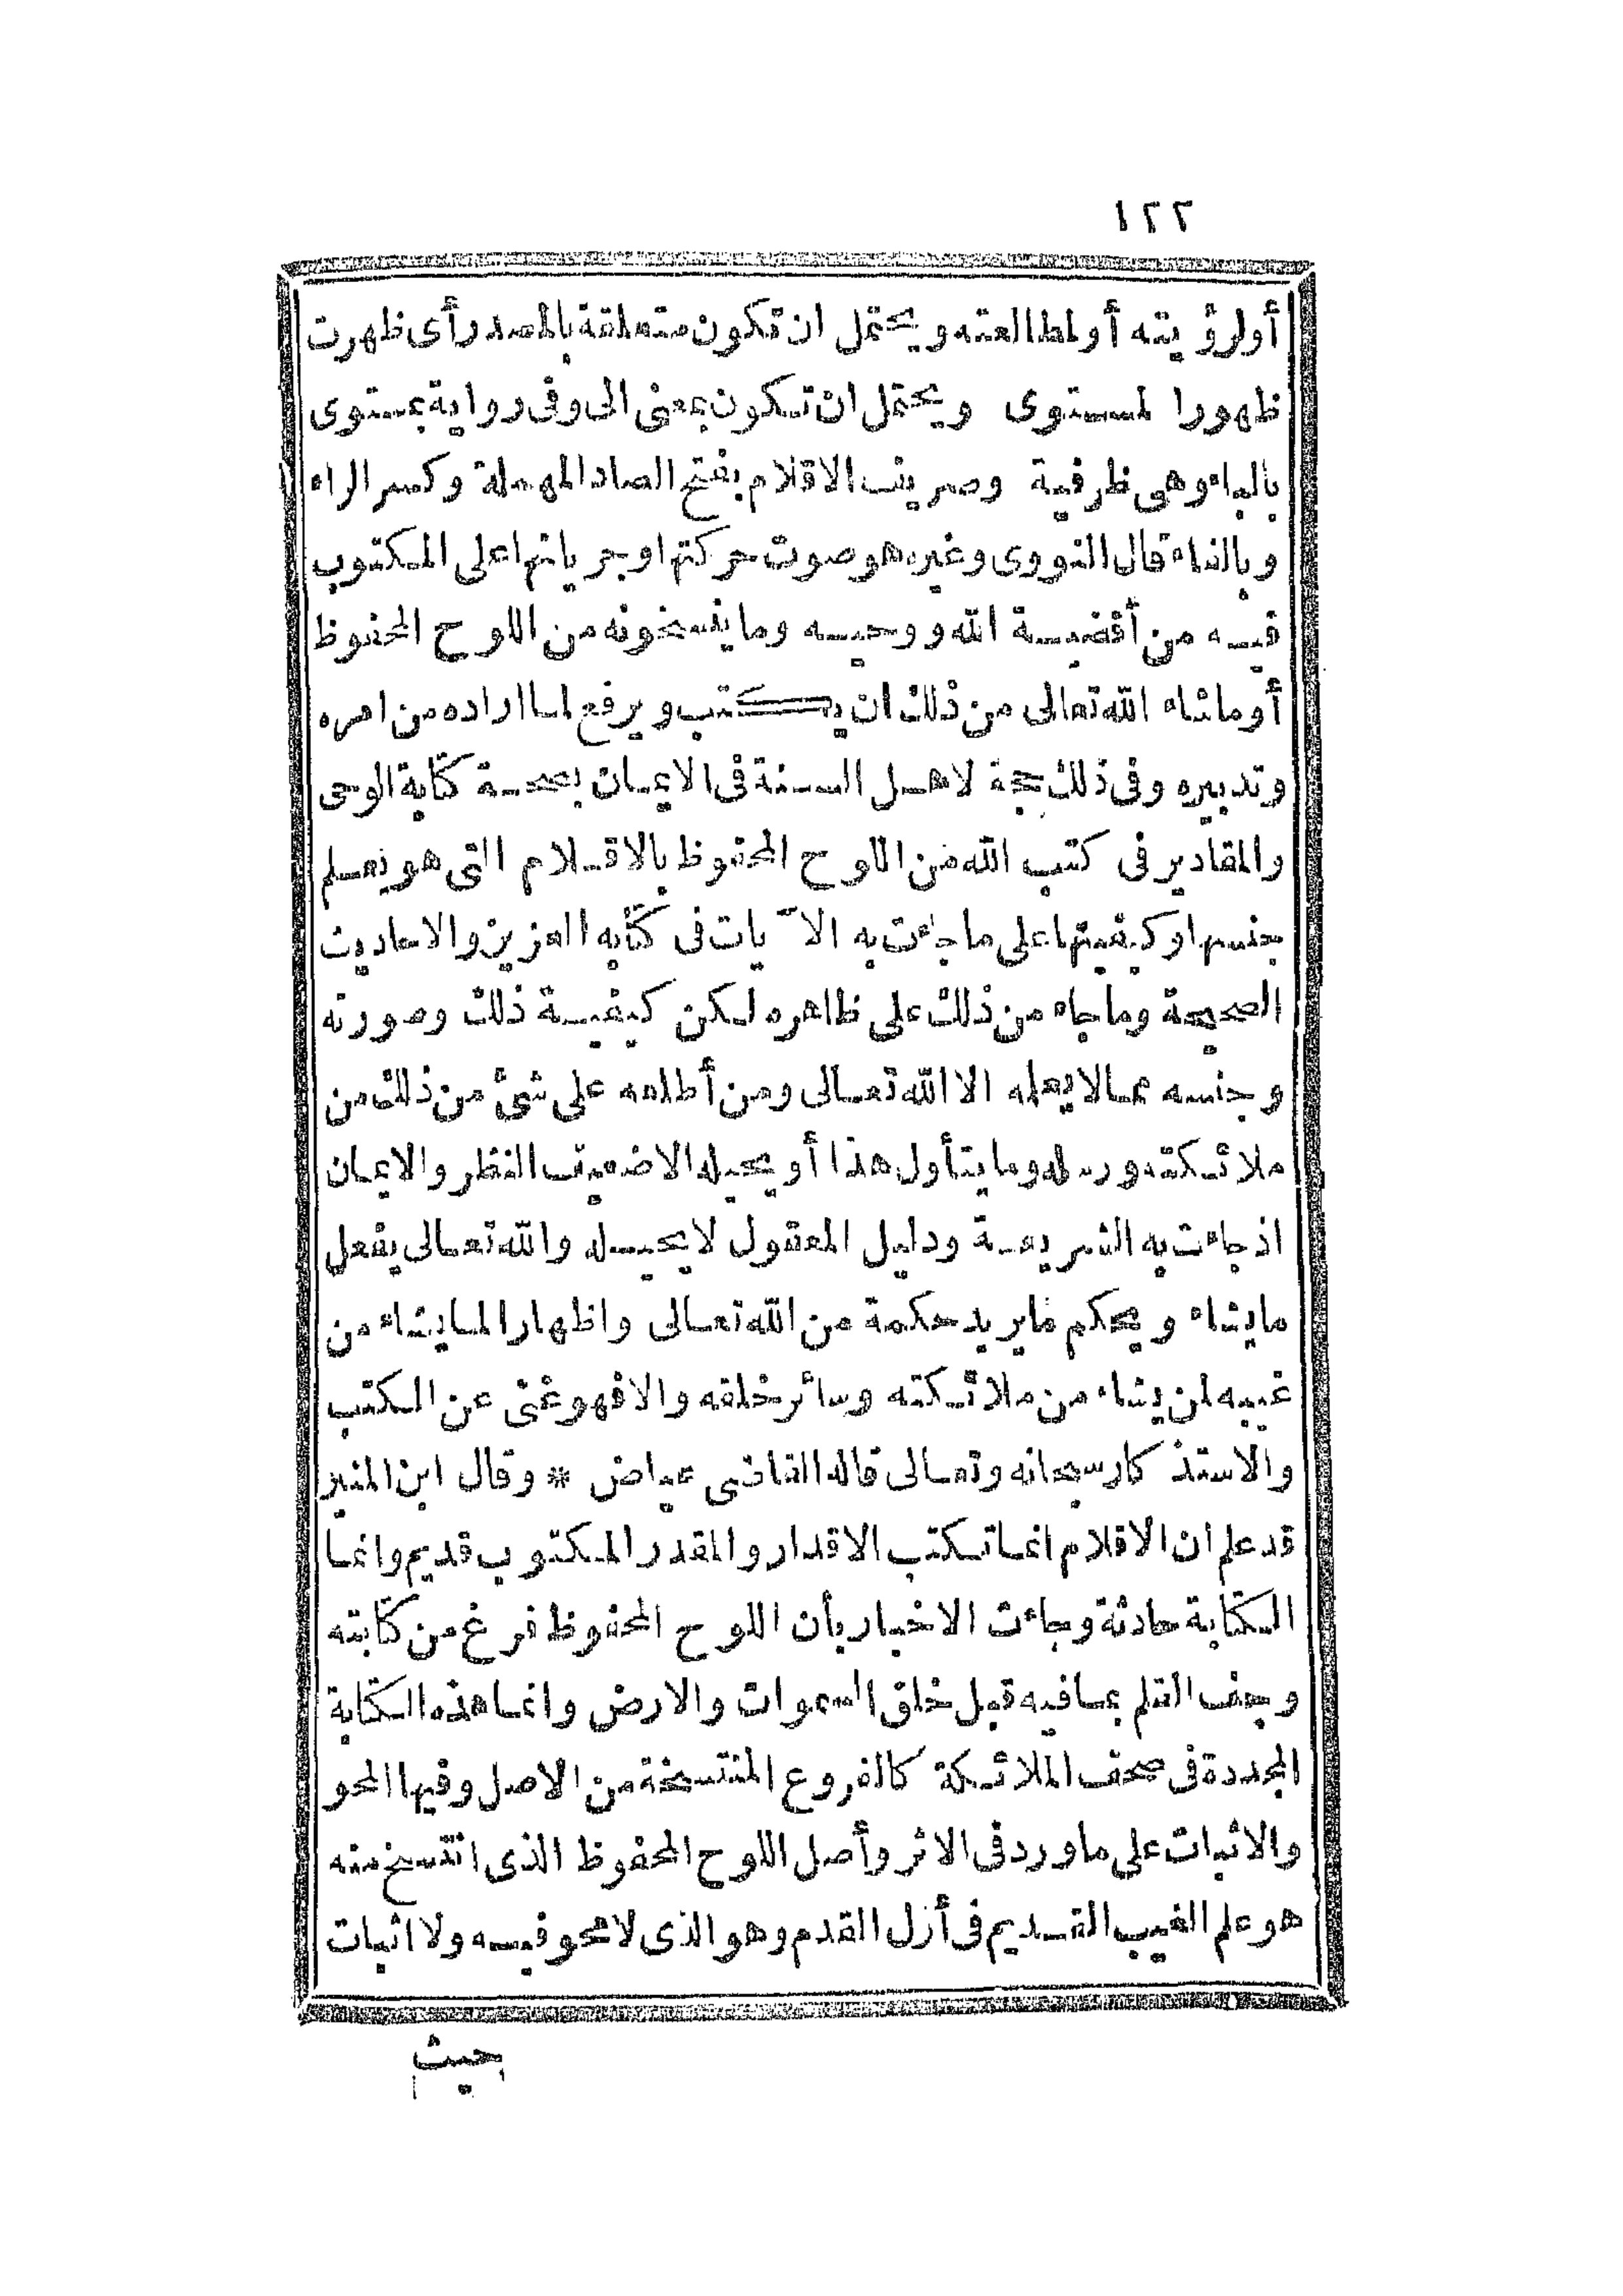 ١٢٢
أولرؤيته أولمطالعته ويحتمل ان تكون متعلقة بالمصدر أى ظهرت
ظهورا لمستوى ويحتمل ان تكون بمعنى الى وفى رواية بمستوى
بالباء وهى ظرفية وصريف الاقلام بفتح الصاد المهملة وكسر الراء
وبالفاء قال النووى وغيره هو صوت حركتها وجريانها على المكتوب
فيه من أقضية الله ووحيه وما ينسخونه من اللوح المحفوظ
أوماشاء الله تعالى من ذلك ان يكتب ويرفع لما اراده من امره
وتدبيره وفى ذلك حجة لاهل السنة فى الايمان بصحة كتابة الوحى
والمقادير فى كتب الله من اللوح المحفوظ بالاقلام التى هو يعلم
جنسها وكيفيتها على ماجاءت به الآيات فى كتابه العزيز والاحاديث
الصحيحة وماجاء من ذلك على ظاهره لكن كيفية ذلك وصورته
وجنسه مما لا يعلمه الا الله تعالى ومن أطلعه على شئ من ذلك من
ملائكته ورسله وما يتأول هذا أو يحيله الاضعيف النظر والايمان
اذ جاءت به الشريعة ودليل المعقول لا يحيله والله تعالى يفعل
مايشاء ويحكم مايريد حكمة من الله تعالى واظهارا لما يشاء من
غيبه لمن يشاء من ملائكته وسائر خلقه والافهو غنى عن الكتب
والاستذكار سبحانه وتعالى قاله القاضى عياض * وقال ابن المنير
قد علم ان الاقلام انما تكتب الاقدار والمقدر المكتوب قديم وانما
الكتابة حادثة وجاءت الاخبار بأن اللوح المحفوظ فرغ من كتابته
وجف القلم بما فيه قبل خلق السموات والارض وانما هذه الكتابة
المجددة فى صحف الملائكة كالفروع المنتسخة من الاصل وفيها المحو
والاثبات على ماورد فى الاثر وأصل اللوح المحفوظ الذى انتسخ منه
هو علم الغيب القديم فى أزل القدم وهو الذى لا محو فيه ولا اثبات
حيث